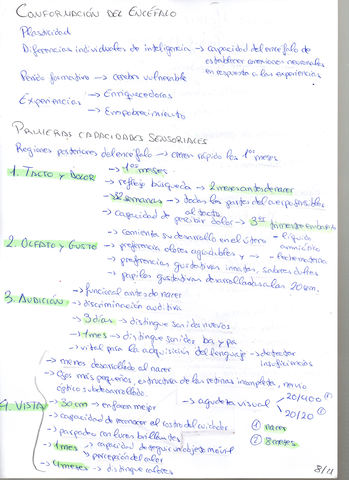 CONFORMACIÓN DEL ENCÉFALO
Plasticidad
Diferencias individuales de inteligencia → capacidad del encéfalo de
establecer conexiones neuronales
en respuesta a las experiencias
Periodo formativo → cerebro vulnerable
Experiencias → Enriquecedoras
→ Empobrecimiento
PRIMERAS CAPACIDADES SENSORIALES
Regiones posteriores del encéfalo → crecen rápido los 1os meses
1. TACTO y DOLOR → 1os meses
→ reflejo búsqueda → 2 meses antes de nacer
→ 32 semanas → todas las partes del cuerpo sensibles
al tacto
→ capacidad de percibir dolor → 3er trimestre
2. OLFATO y GUSTO → comienza su desarrollo en el útero - líquido
amniótico
→ preferencia olores agradables y → - leche materna
→ preferencias gustativas innatas, sabores dulces
→ papilas gustativas desarrolladas a las 20 sem.
3. AUDICIÓN → funcional antes de nacer
→ discriminación auditiva
→ 3 días → distingue sonidos nuevos
→ 1 mes → distingue sonidos ba y pa
→ vital para la adquisición del lenguaje → detectar
insuficiencias
4. VISTA → menos desarrollado al nacer
→ Ojos más pequeños, estructura de las retinas incompleta, nervio
óptico subdesarrollado.
→ 30 cm → enfocan mejor → agudeza visual 20/400 ①
20/20 ②
→ capacidad de reconocer el rostro del cuidador ① nacer
→ parpadeo con luces brillantes ② 8 meses
→ 1 mes → capacidad de seguir un objeto móvil
percepción del color
→ 4 meses → distingue colores
8/11